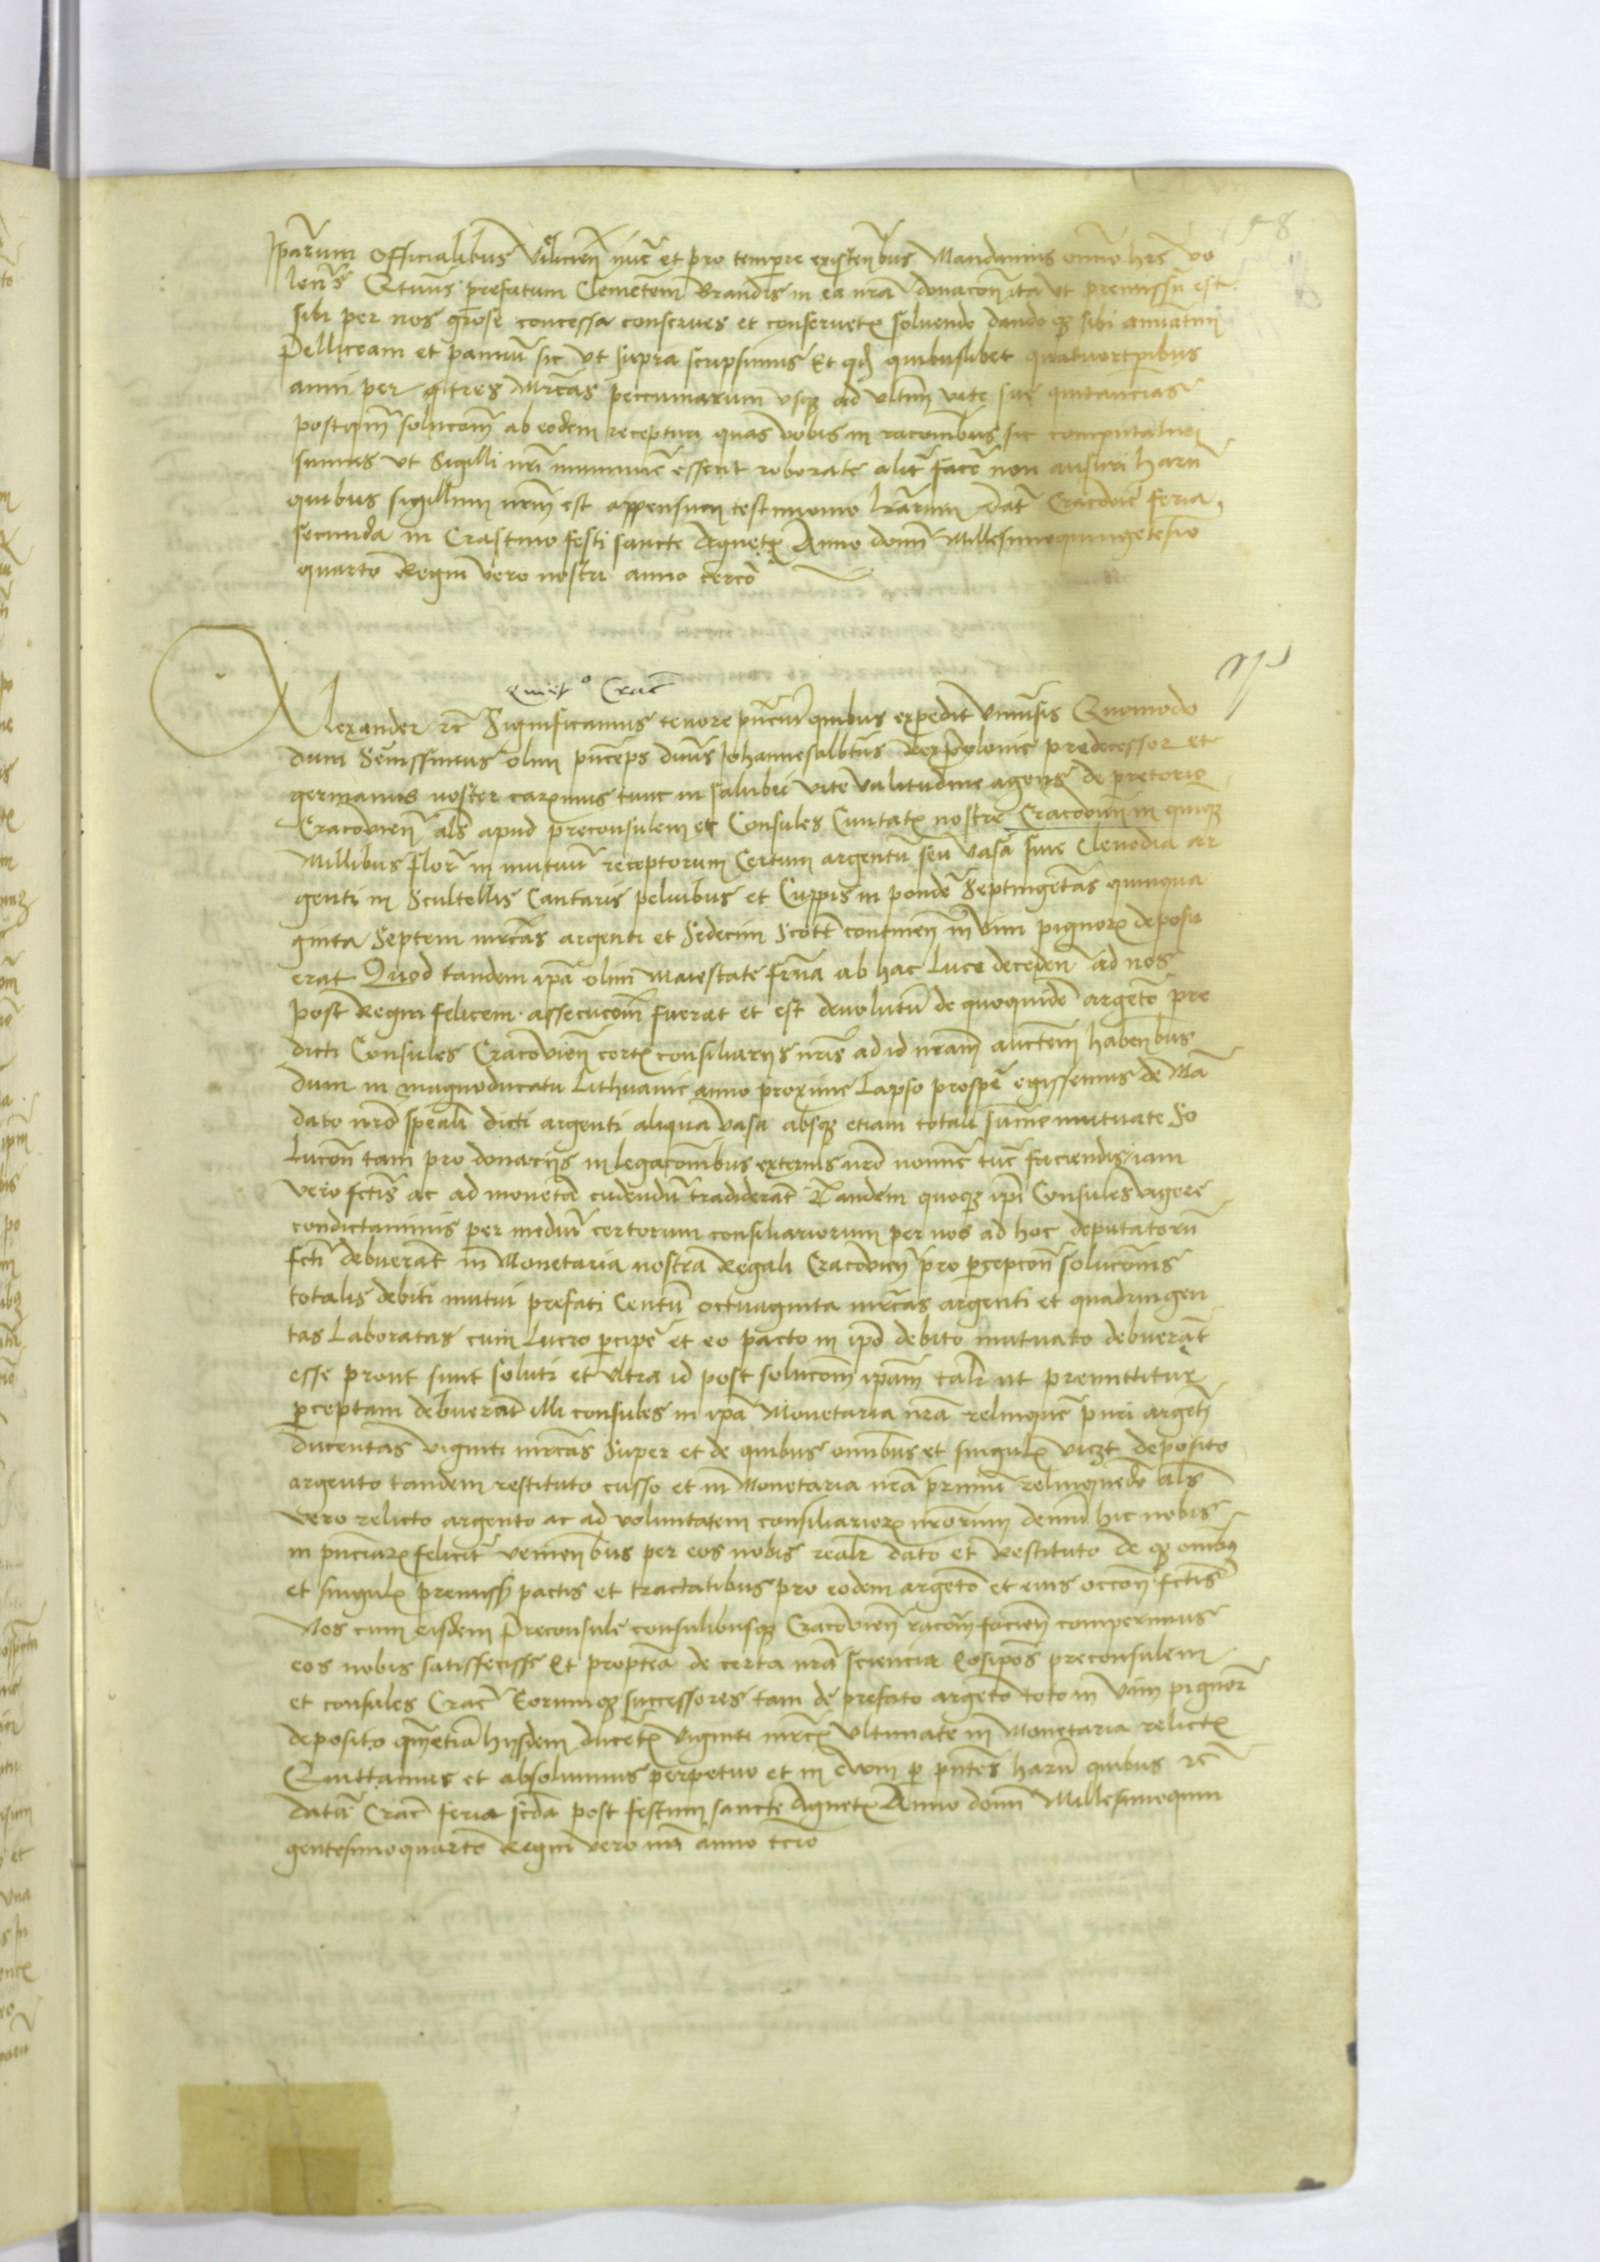 58
parum Officialibus Vielicien nuc et pro tempore existenbus Mandamus omno hrs vo
lens Qtuus prefatum Clemetem Brandis in ea nra donacon ita ut premissu est
sibi per nos gose concessa conserves et conservetr solvendo dandoq sibi annuatim
Pelliceam et pannu sic ut supra scripsimus Et qd quibuslibet quatuortpibus
anni per tres Mrcas peccuniarum usq ad ultim vite sue quitancias
postqm solucom ab eodem recepturi quas vobis in raconibus sic computaturi
sumus ut Sigilli nri munimine essent roborate alit face non ausuri haru
quibus sigillum nrm est appensum testimonio lrarum Dat Cracovie feria
secunda in Crastino festi sancte Agnetr Anno domi Millesimoquingetesio
quarto Regni vero nostri anno tercio
Quiet o Crac
Alexander rc Significamus tenore pncium quibus expedit universis Quomodo
dum Sermissimus olim princeps dnus Johannesalbtus Rex Polonie predecessor et
germanus noster carmus tunc in salubri vite valitudine agens de pretorio
Cracovien als apud preconsulem et Consules Civitatr nostre Cracovien in quinq
Millibus Flor in mutuu receptorum Certum argentu seu vasa sive Clenodia ar
genti in Scultellis Cantaris pelvibus et Cuppis in ponde Septingetas quinqua
ginta Septem mrcas argenti et Sedecim Scott continen in vim pignorr deposu
erat Quod tandem ipa olim Maiestate frna ab hac luce deceden ad nos
post Regni felicem assecucom fuerat et est devolutu de quoquide argeto pre
dicti Consules Cracovien certr consiliarys nris ad id nram auctem habenbus
dum in magnoducatu Lithuanie anno proxime Lapso prospe egissemus de Ma
dato nro speali dicti argenti aliqua vasa absq etiam totali sume mutuate So
lucon tam pro donarys in legaconibus externis nro nomine tuc faciendis iam
vero fctis ac ad moneta cudendu tradiderat Tandem quoq ipi Consules vigore
condictaminis per mediu certorum consiliariorum per nos ad hoc deputatoru
fcti debuerat in Monetaria nostra Regali Cracovien pro pcepcon solucionis
totalis debiti mutui prefati Centu octuaginta mrcas argenti et quadringen
tas Laboratas cum lucro pcipe et eo pacto in ipo debito mutuato debuerat
esse prout sunt soluti et ultra id post solucom ipam talr ut premittitur
pceptam debuerat illi consules in ipa Monetaria nra relinque puri argeti
ducentas viginti mrcas Super et de quibus omnibus et singulr viczt deposito
argento tandem restituto cusso et in Monetaria nra primu relinquedo als
vero relicto argento ac ad voluntatem consiliarior nrorum demu hic nobis
in pnciar felicit venienbus per eos nobis realr dato et Restituto De q omibus
et singulr premiss pactis et tractatibus pro eodem argeto et eius occon fctis
Nos cum eisdem Preconsule consulibusq Cracovien racom facien comperimus
eos nobis satisfecisse Et proptea de certa nra sciencia Eosipos preconsulem
et consules Crac Eorumq successores tam de prefato argeto toto in vim pignor
deposito qm etia hysdem ducetr viginti mrcr ultimate in Monetaria relictr
Quittamus et absolvimus perpetuo et in evom p pntes haru quibus rc
datu Crac feria scda post festum sancte Agnetr Anno domi Millesimoquin
gentesimoquarto Regni vero nri anno tcio